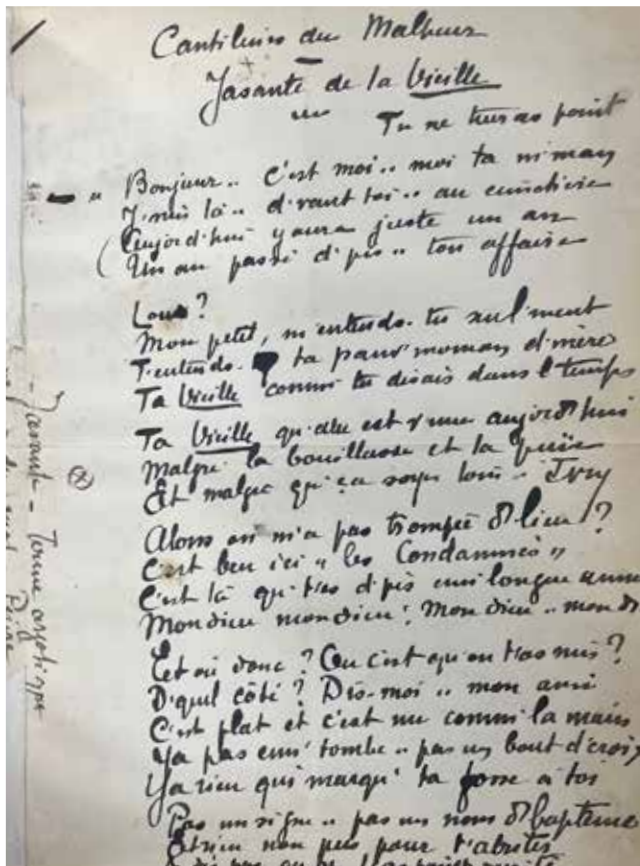 Cantilène du Malheur
Jasante de la Vieille
Tu ne tueras point
" Bonjour.. C'est moi.. moi ta m'man
J'suis là.. d'vant toi.. au cimetière
Aujord'hui y aura juste un an
Un an passé d'pis.. ton affaire
Louis ?
Mon petit, m'entends-tu seul'ment
T'entends- ta pauv' moman d'mère
Ta Vieille comm' tu disais dans l'temps
Ta Vieille qu'alle est v'nue aujord'hui
Malgré la bouillasse et la puïe
Et malgré qu'ça soye loin.. Ivry
Alorss on m'a pas trompée d'lieu ?
C'est ben ici « les Condamnés »
C'est là qu't'es d'pis eun' longue anné
Mon dieu mon dieu ! Mon dieu.. mon d
Et où donc ? Où c'est qu'on t'as mis ?
D'quel côté ? Dis-moi.. mon ami
C'est plat et c'est nu comm' la main
Ya pas eun' tombe.. pas un bout d'croix
Ya rien qui marqu' ta fosse à toi
Pas un signe.. pas un nom d'baptême
Et rien non pus pour t'abriter
Jasante - Terme argotique